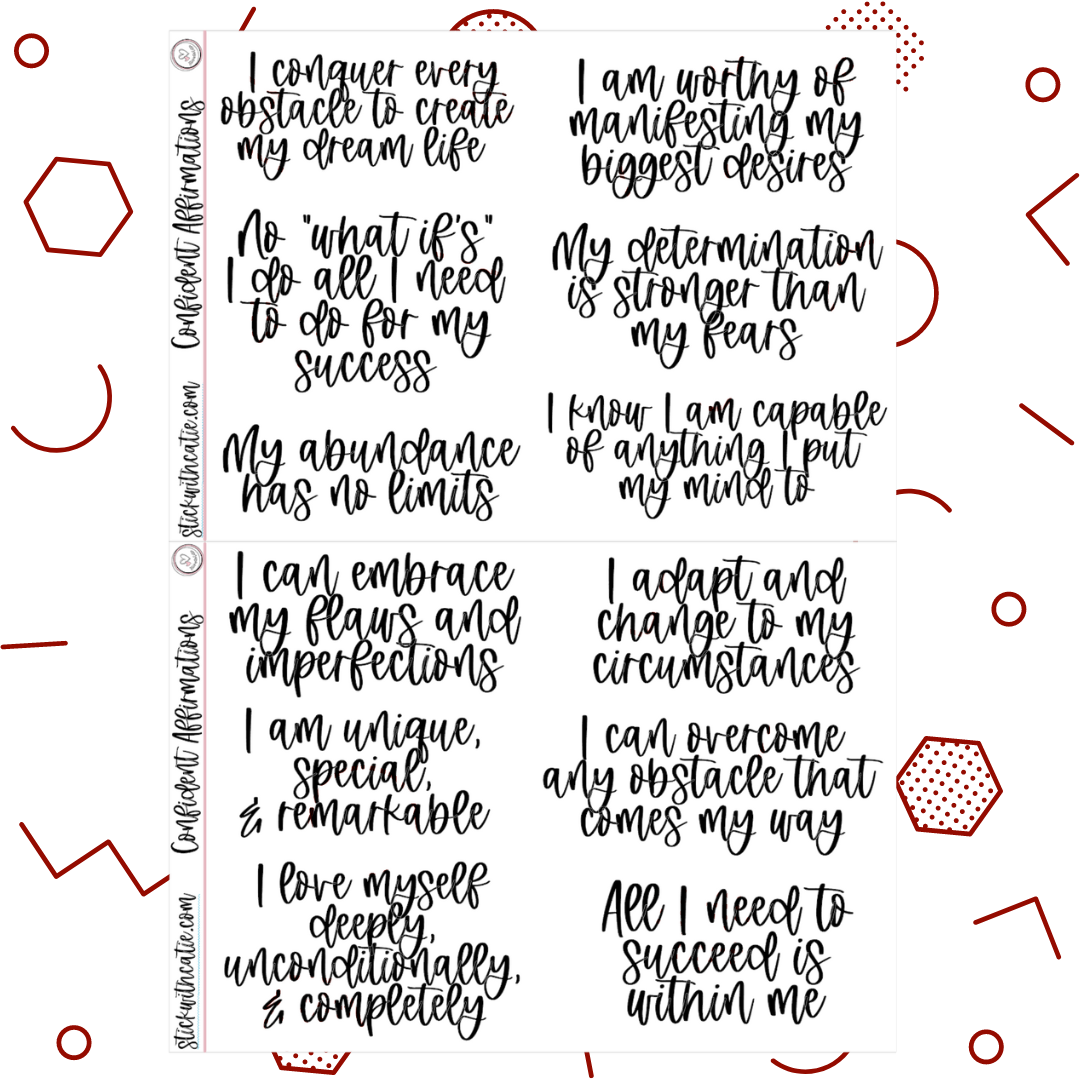 Confident Affirmations
stickwithcatie.com
I conquer every
obstacle to create
my dream life
No "what if's"
I do all I need
to do for my
success
My abundance
has no limits
I am worthy of
manifesting my
biggest desires
My determination
is stronger than
my fears
I know I am capable
of anything I put
my mind to
Confident Affirmations
stickwithcatie.com
I can embrace
my flaws and
imperfections
I am unique,
special,
& remarkable
I love myself
deeply,
unconditionally,
& completely
I adapt and
change to my
circumstances
I can overcome
any obstacle that
comes my way
All I need to
succeed is
within me